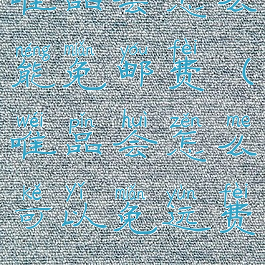 唯品会怎么
néng miǎn yóu fèi
能免邮费（
wéi pǐn huì zěn me
唯品会怎么
kě yǐ miǎn yùn fèi
可以免运费